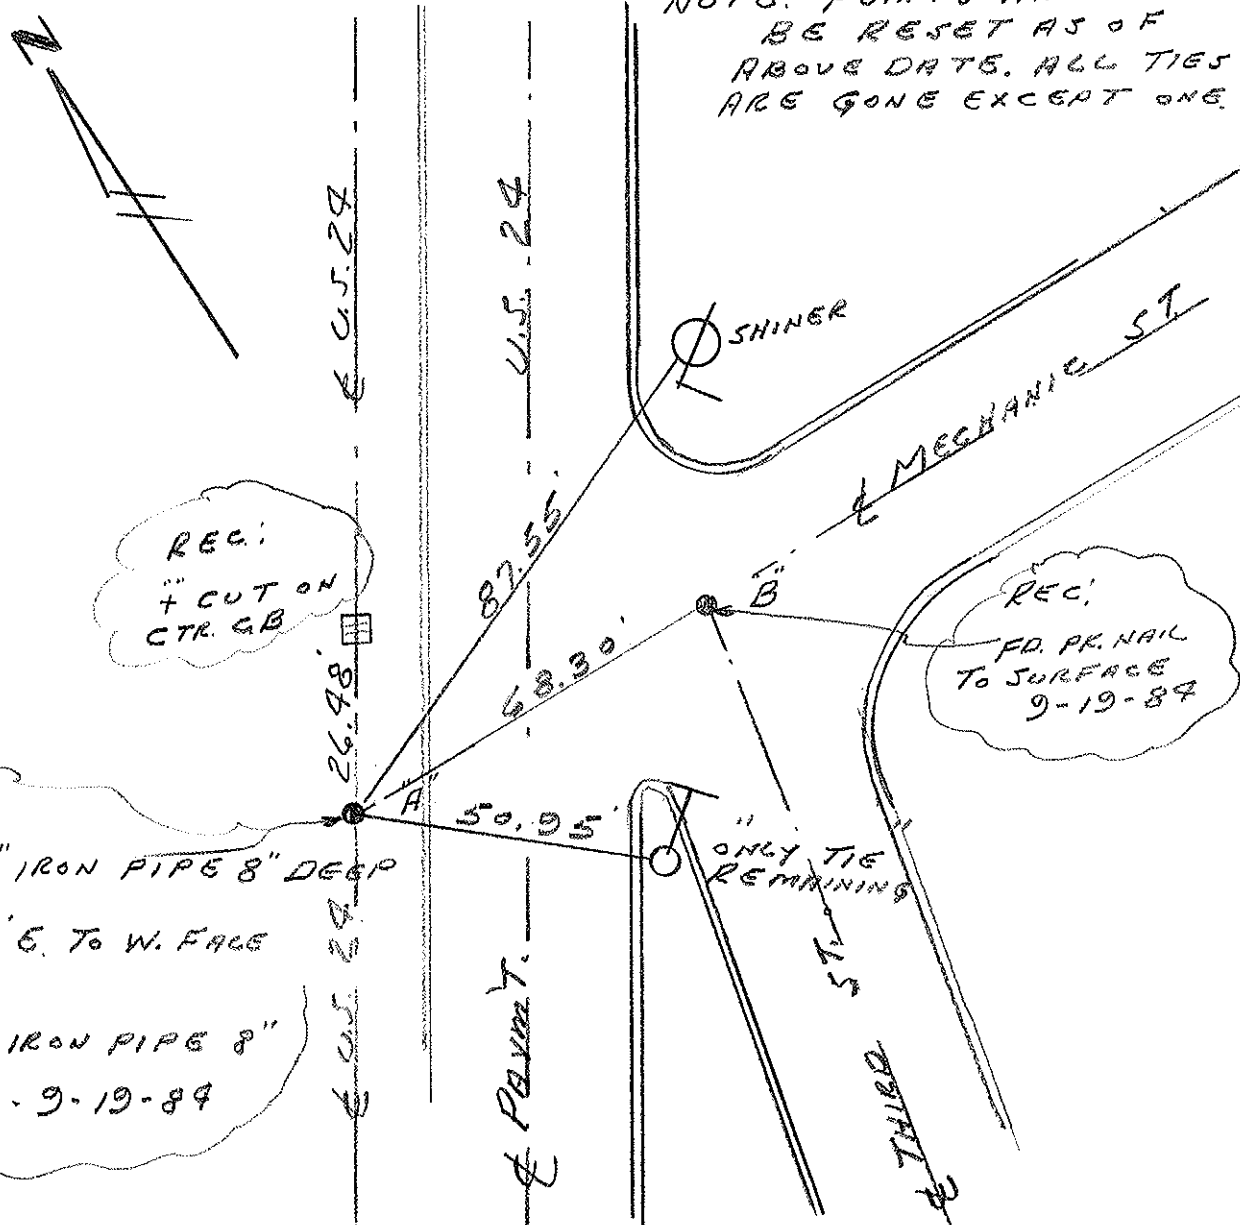 N
BE RESET AS OF
ABOVE DATE. ALL TIES
ARE GONE EXCEPT ONE.
℄ U.S. 24
U.S. 24
SHINER
℄ MECHANIC ST.
REC:
"+" CUT ON
CTR. CB
87.55'
"B"
REC:
FD. PK. NAIL
TO SURFACE
9-19-84
68.30'
26.48'
"A"
50.95'
ONLY TIE
REMAINING
" IRON PIPE 8" DEEP
' E. TO W. FACE
IRON PIPE 8"
- 9-19-84
℄ U.S. 24
℄ PAVM'T.
℄ THIRD ST.